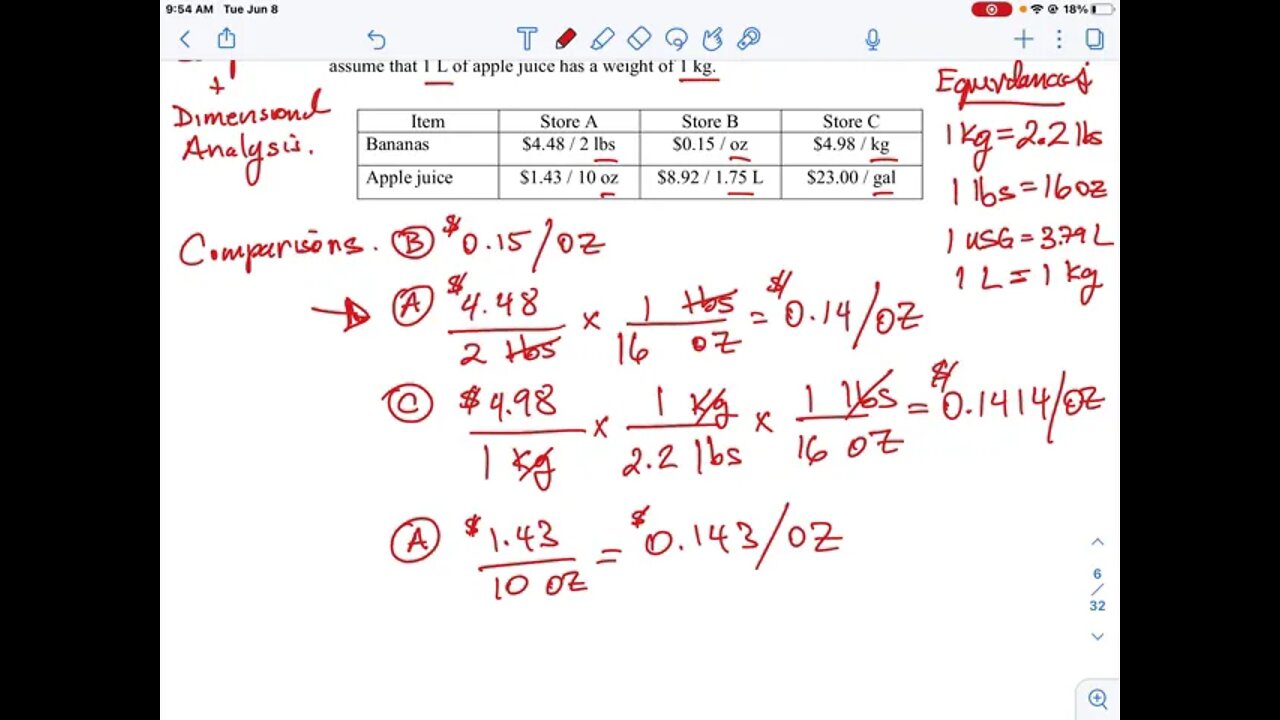 9:54 AM Tue Jun 8
18%
assume that 1 L of apple juice has a weight of 1 kg.
+
Dimensional
Analysis.
Item Store A Store B Store C
Bananas $4.48 / 2 lbs $0.15 / oz $4.98 / kg
Apple juice $1.43 / 10 oz $8.92 / 1.75 L $23.00 / gal
Equivalances
1 Kg = 2.2 lbs
1 lbs = 16 oz
1 USG = 3.79 L
1 L = 1 kg
Comparisons. B $0.15/OZ
A $4.48 / 2 lbs × 1 lbs / 16 OZ = $0.14/OZ
C $4.98 / 1 kg × 1 Kg / 2.2 lbs × 1 lbs / 16 OZ = $0.1414/OZ
A $1.43 / 10 OZ = $0.143/OZ
6
/
32